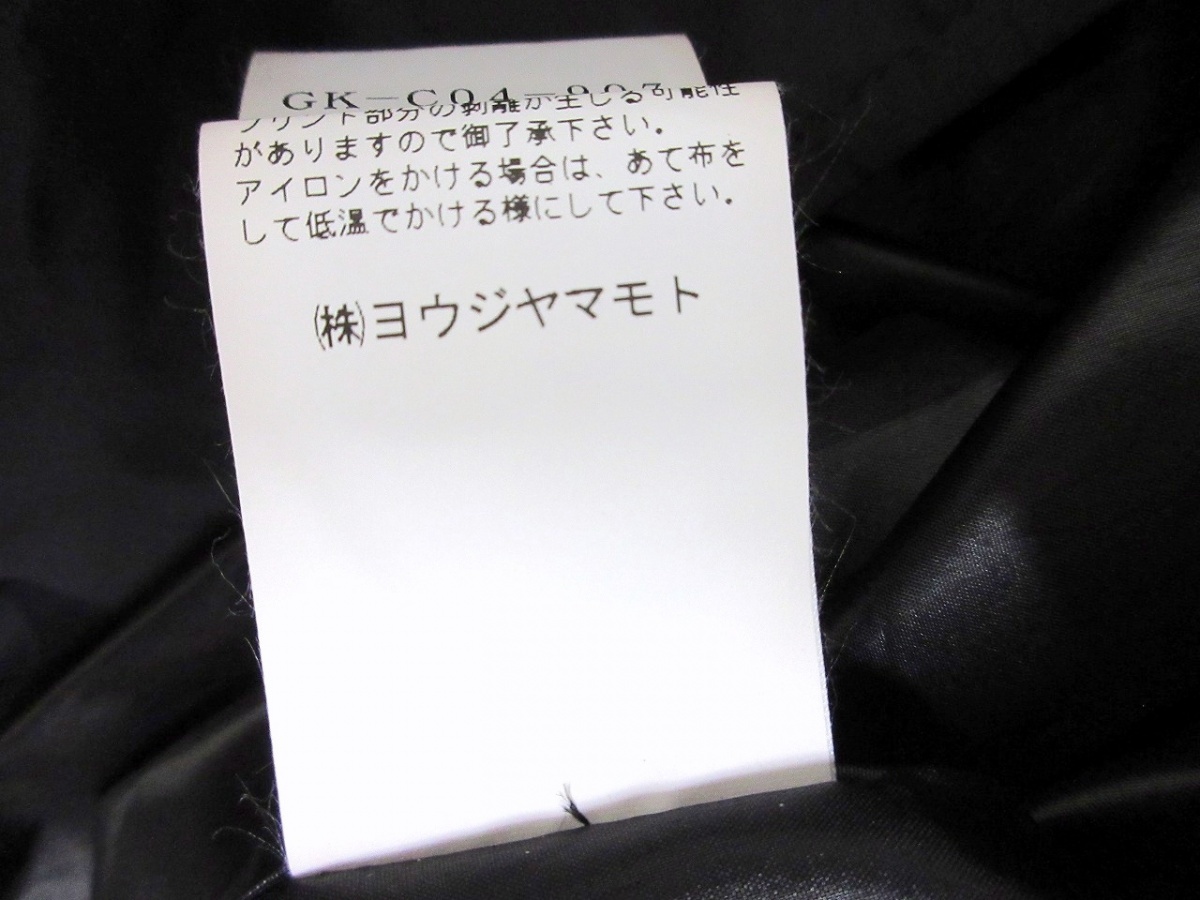 GK-C04-907
プリント部分の剥離が生じる可能性
がありますので御了承下さい。
アイロンをかける場合は、あて布を
して低温でかける様にして下さい。
㈱ヨウジヤマモト